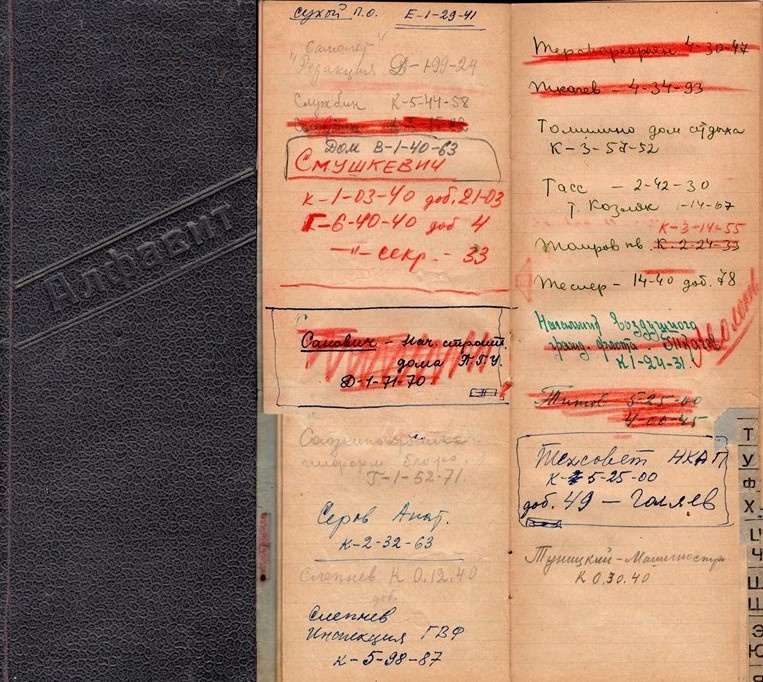 Алфавит
Сухой П.О. Е-1-29-41
"Самолет"
Редакция Д-1-99-24
Службин К-5-44-58
Дом В-1-40-63
СМУШКЕВИЧ
К-1-03-40 доб. 21-03
Г-6-40-40 доб 4
-"- секр. - 33
Санович - Нач. строит.
дома
Д-1-71-70
Г-1-52-71
Серов Анат.
К-2-32-63
Слепнев К 0.12.40
доб.
Слепнев
Инспекция ГВФ
К-5-98-87
4-30-47
Ткачев - 4-34-93
Томилино дом отдыха
К-3-57-52
Тасс - 2-42-30
т. Козляк -14-67
К-3-14-55
Таиров кв. К-2-24-33
Теслер - 14-40 доб. 78
Начальник Воздушного
гражд. флота Ткачев
К1-24-31
Титов 5-25-00
4-00-45
Техсовет НКАП
К-5-25-00
доб. 49 - Голяев
Туницкий -
К 0.30.40
Т
У
Ф
Х
Ц
Ч
Ш
Щ
Э
Ю
Я